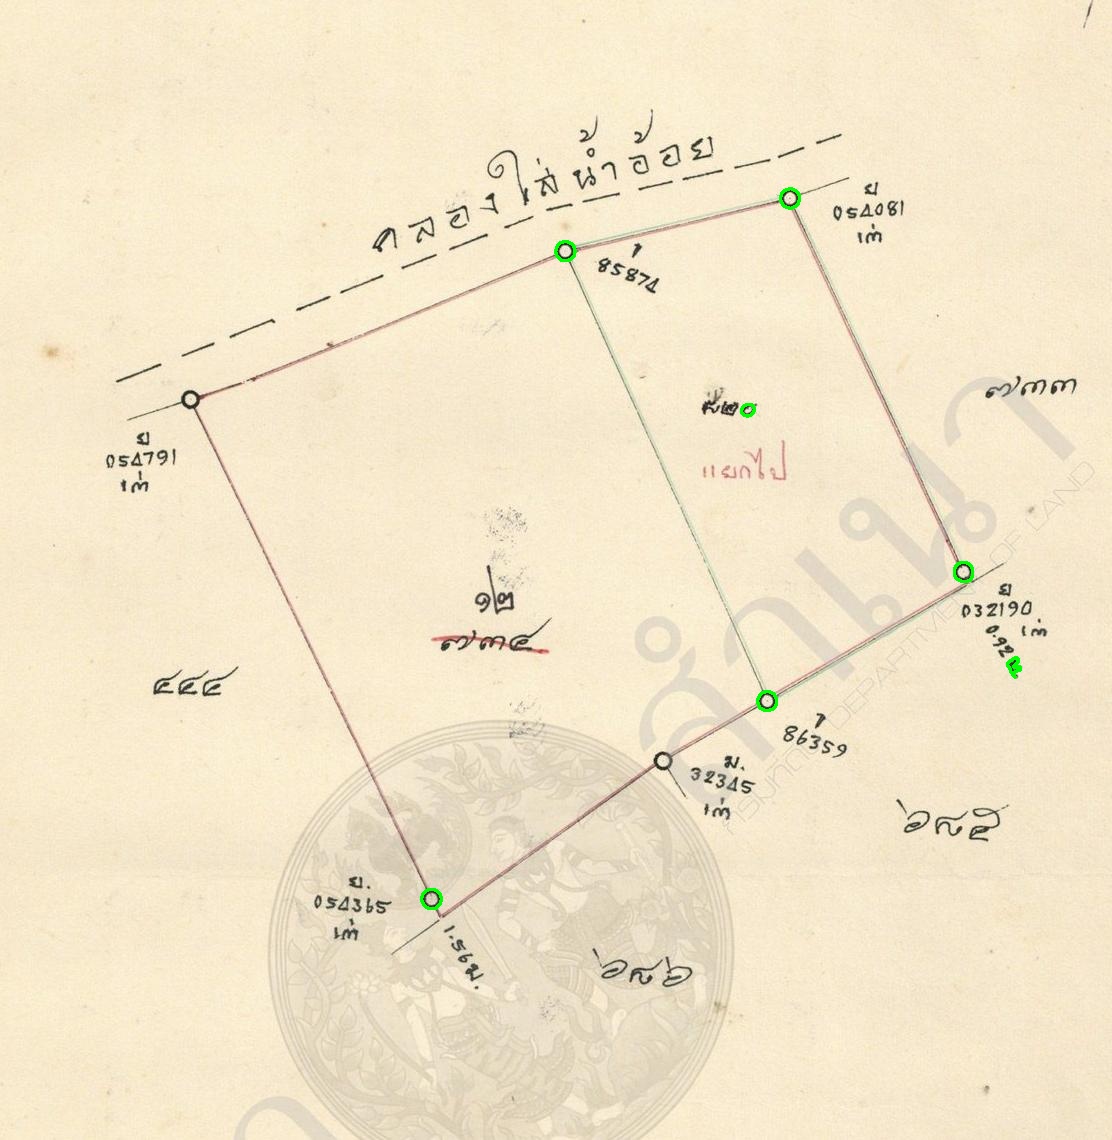 คลองใส่น้ำอ้อย
ย
054081
เก่า
85874
๗๓๓
ย
054791
เก่า
แยกไป
๑๒
๗๓๔
ย
032190
เก่า
0.92 ม
๔๔๔
86359
ม.
32345
เก่า
๖๘๕
ย.
054365
เก่า
1.56 ม.
๖๘๖
สำเนา
กรมที่ดิน DEPARTMENT OF LAND